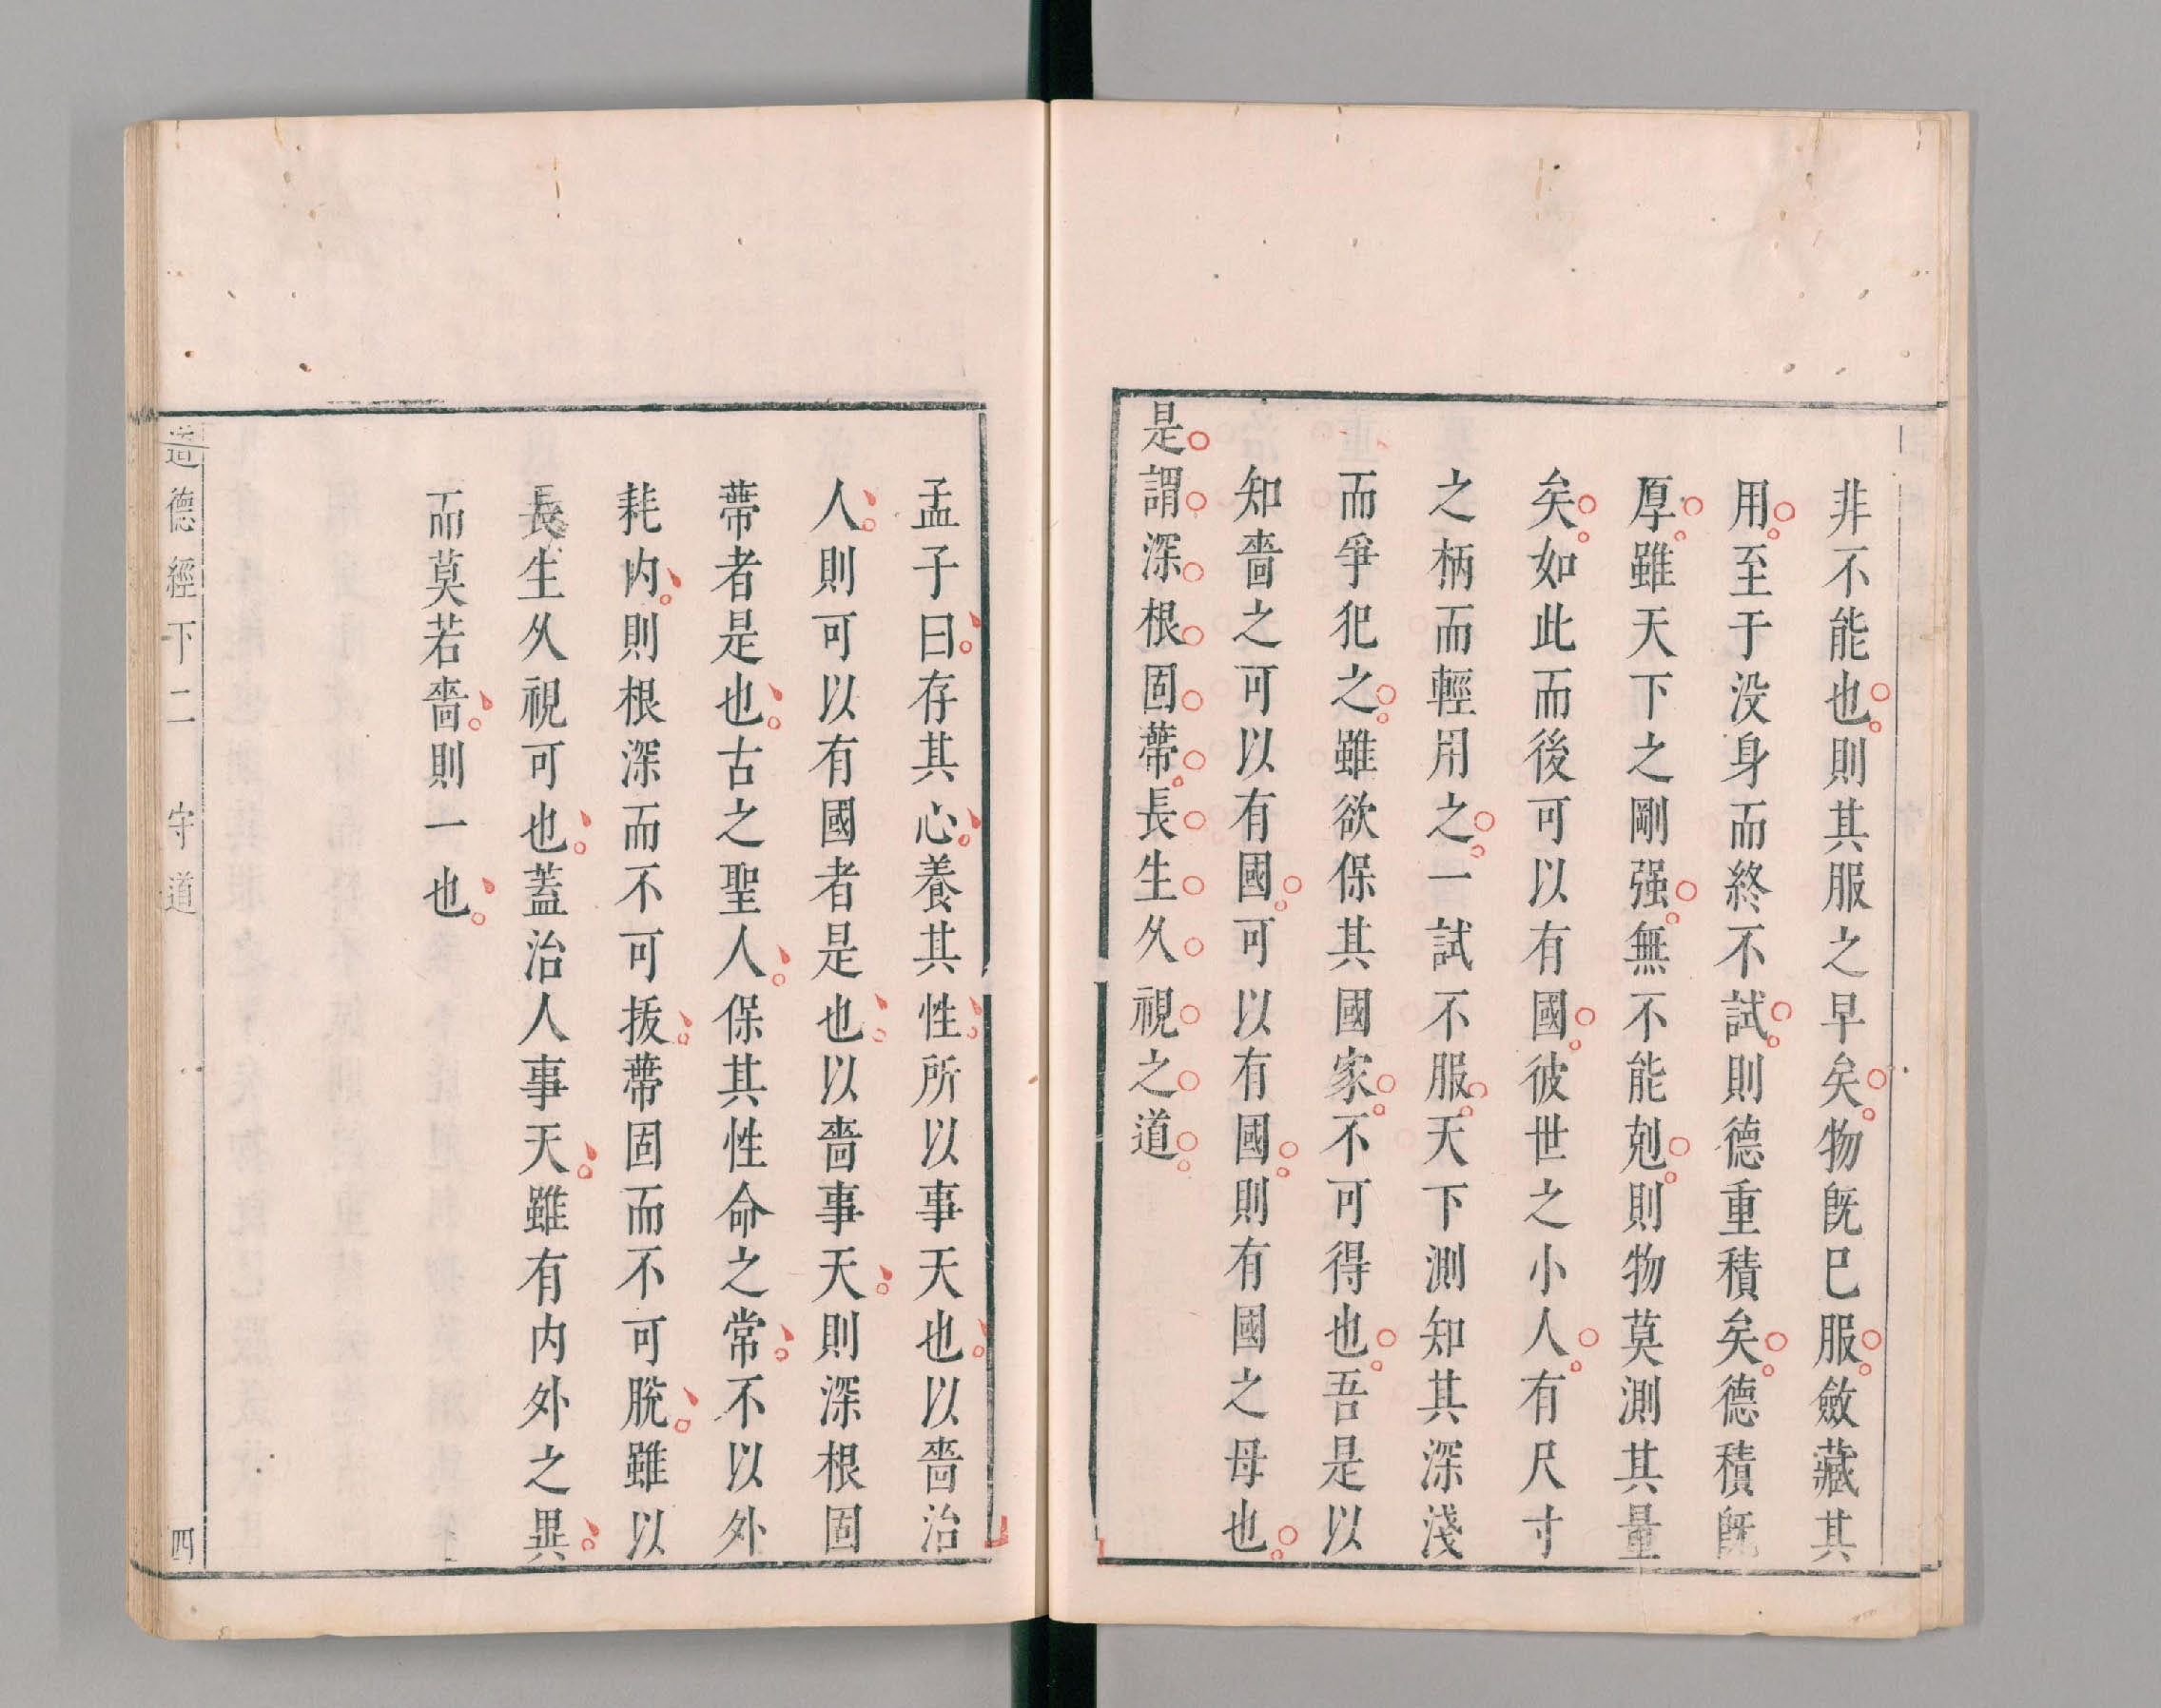 非不能也則其服之早矣物旣巳服斂藏其
用至于没身而終不試則德重積矣德積旣
厚雖天下之剛强無不能剋則物莫測其量
矣如此而後可以有國彼世之小人有尺寸
之柄而輕用之一試不服天下測知其深淺
而爭犯之雖欲保其國家不可得也吾是以
知嗇之可以有國可以有國則有國之母也
是謂深根固蔕長生久視之道
孟子曰存其心養其性所以事天也以嗇治
人則可以有國者是也以嗇事天則深根固
蔕者是也古之聖人保其性命之常不以外
耗内則根深而不可拔蔕固而不可脫雖以
長生久視可也蓋治人事天雖有内外之異
而莫若嗇則一也
道德經下二 守道 四